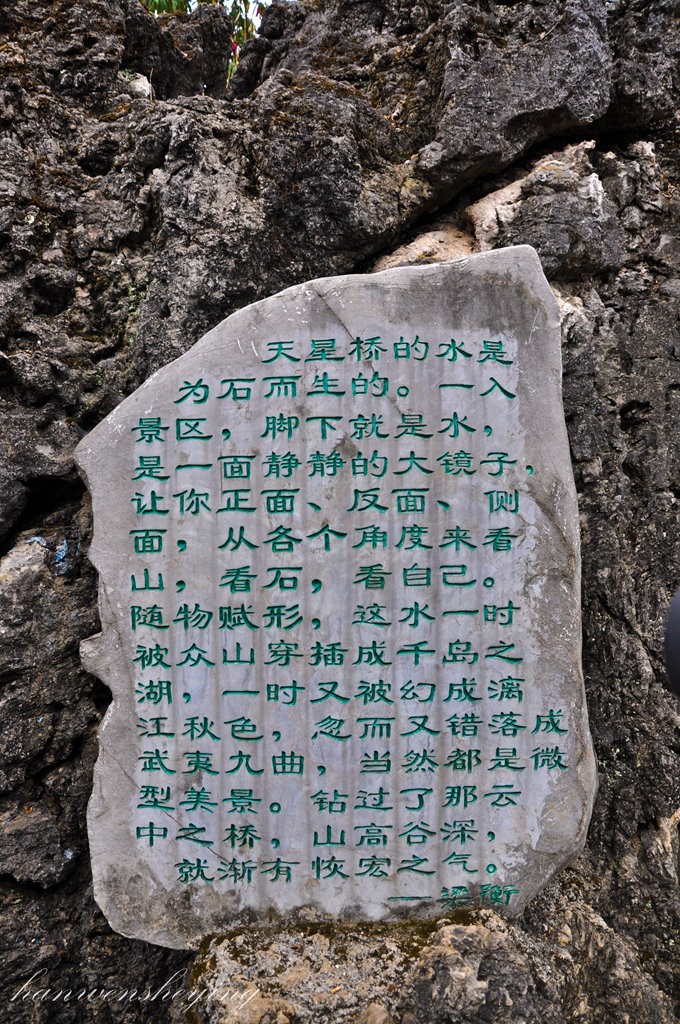 天星桥的水是
为石而生的。一入
景区，脚下就是水，
是一面静静的大镜子，
让你正面、反面、侧
面，从各个角度来看
山，看石，看自己。
随物赋形，这水一时
被众山穿插成千岛之
湖，一时又被幻成漓
江秋色，忽而又错落成
武夷九曲，当然都是微
型美景。钻过了那云
中之桥，山高谷深，
就渐有恢宏之气。
——梁衡
hanwensheying